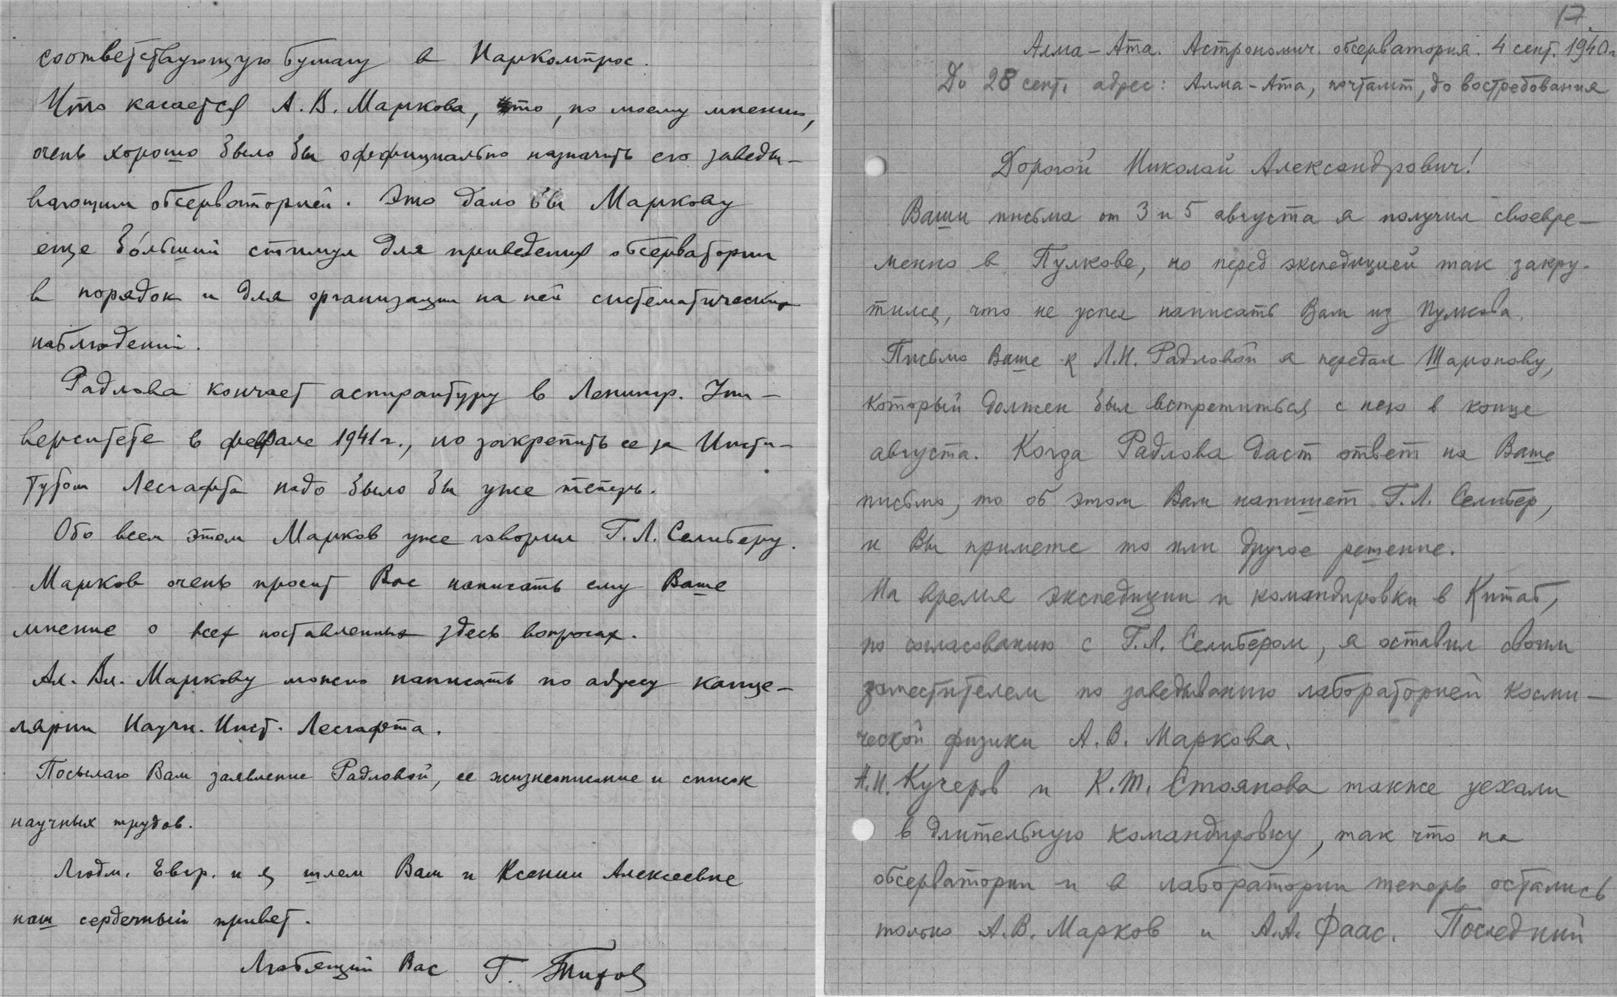 соответствующую бумагу в Наркомпрос.
Что касается А.В. Маркова, то, по моему мнению,
очень хорошо было бы оффициально назначить его заведы-
вающим обсерваторией. Это дало бы Маркову
еще бо́льший стимул для приведения обсерватории
в порядок и для организации на ней систематических
наблюдений.
Радлова кончает аспирантуру в Ленингр. Уни-
верситете в феврале 1941 г., но закрепить ее за Инсти-
тутом Лесгафта надо было бы уже теперь.
Обо всем этом Марков уже говорил Г.Л. Селиберу.
Марков очень просит Вас написать ему Ваше
мнение о всех поставленных здесь вопросах.
Ал. Вл. Маркову можно написать по адресу канце-
лярии Научн. Инст. Лесгафта.
Посылаю Вам заявление Радловой, ее жизнеописание и список
научных трудов.
Людм. Евгр. и я шлем Вам и Ксении Алексеевне
наш сердечный привет.
Любящий Вас Г. Тихов
17
Алма-Ата. Астрономич. обсерватория. 4 сент. 1940 г.
До 28 сент. адрес: Алма-Ата, почтамт, до востребования
Дорогой Николай Александрович!
Ваши письма от 3 и 5 августа я получил своевре-
менно в Пулкове, но перед экспедицией так закру-
тился, что не успел написать Вам из Пулкова.
Письмо Ваше к Л.Н. Радловой я передал Шаронову,
который должен был встретиться с нею в конце
августа. Когда Радлова даст ответ на Ваше
письмо, то об этом Вам напишет Г.Л. Селибер,
и Вы примете то или другое решение.
На время экспедиции и командировки в Китаб,
по согласованию с Г.Л. Селибером, я оставил своим
заместителем по заведыванию лабораторией косми-
ческой физики А.В. Маркова.
Н.И. Кучеров и К.Т. Стоянова также уехали
в длительную командировку, так что на
обсерватории и в лаборатории теперь остались
только А.В. Марков и А.А. Фаас. Последний